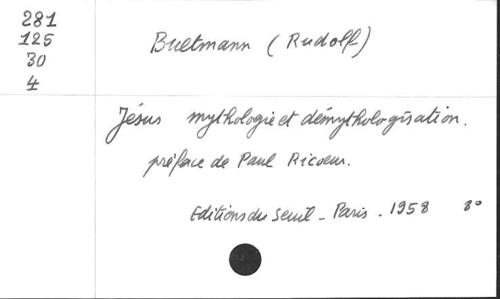 281
125
30
4
Bultmann (Rudolf)
Jésus mythologie et démythologisation.
préface de Paul Ricoeur.
Editions du Seuil - Paris - 1958 8°